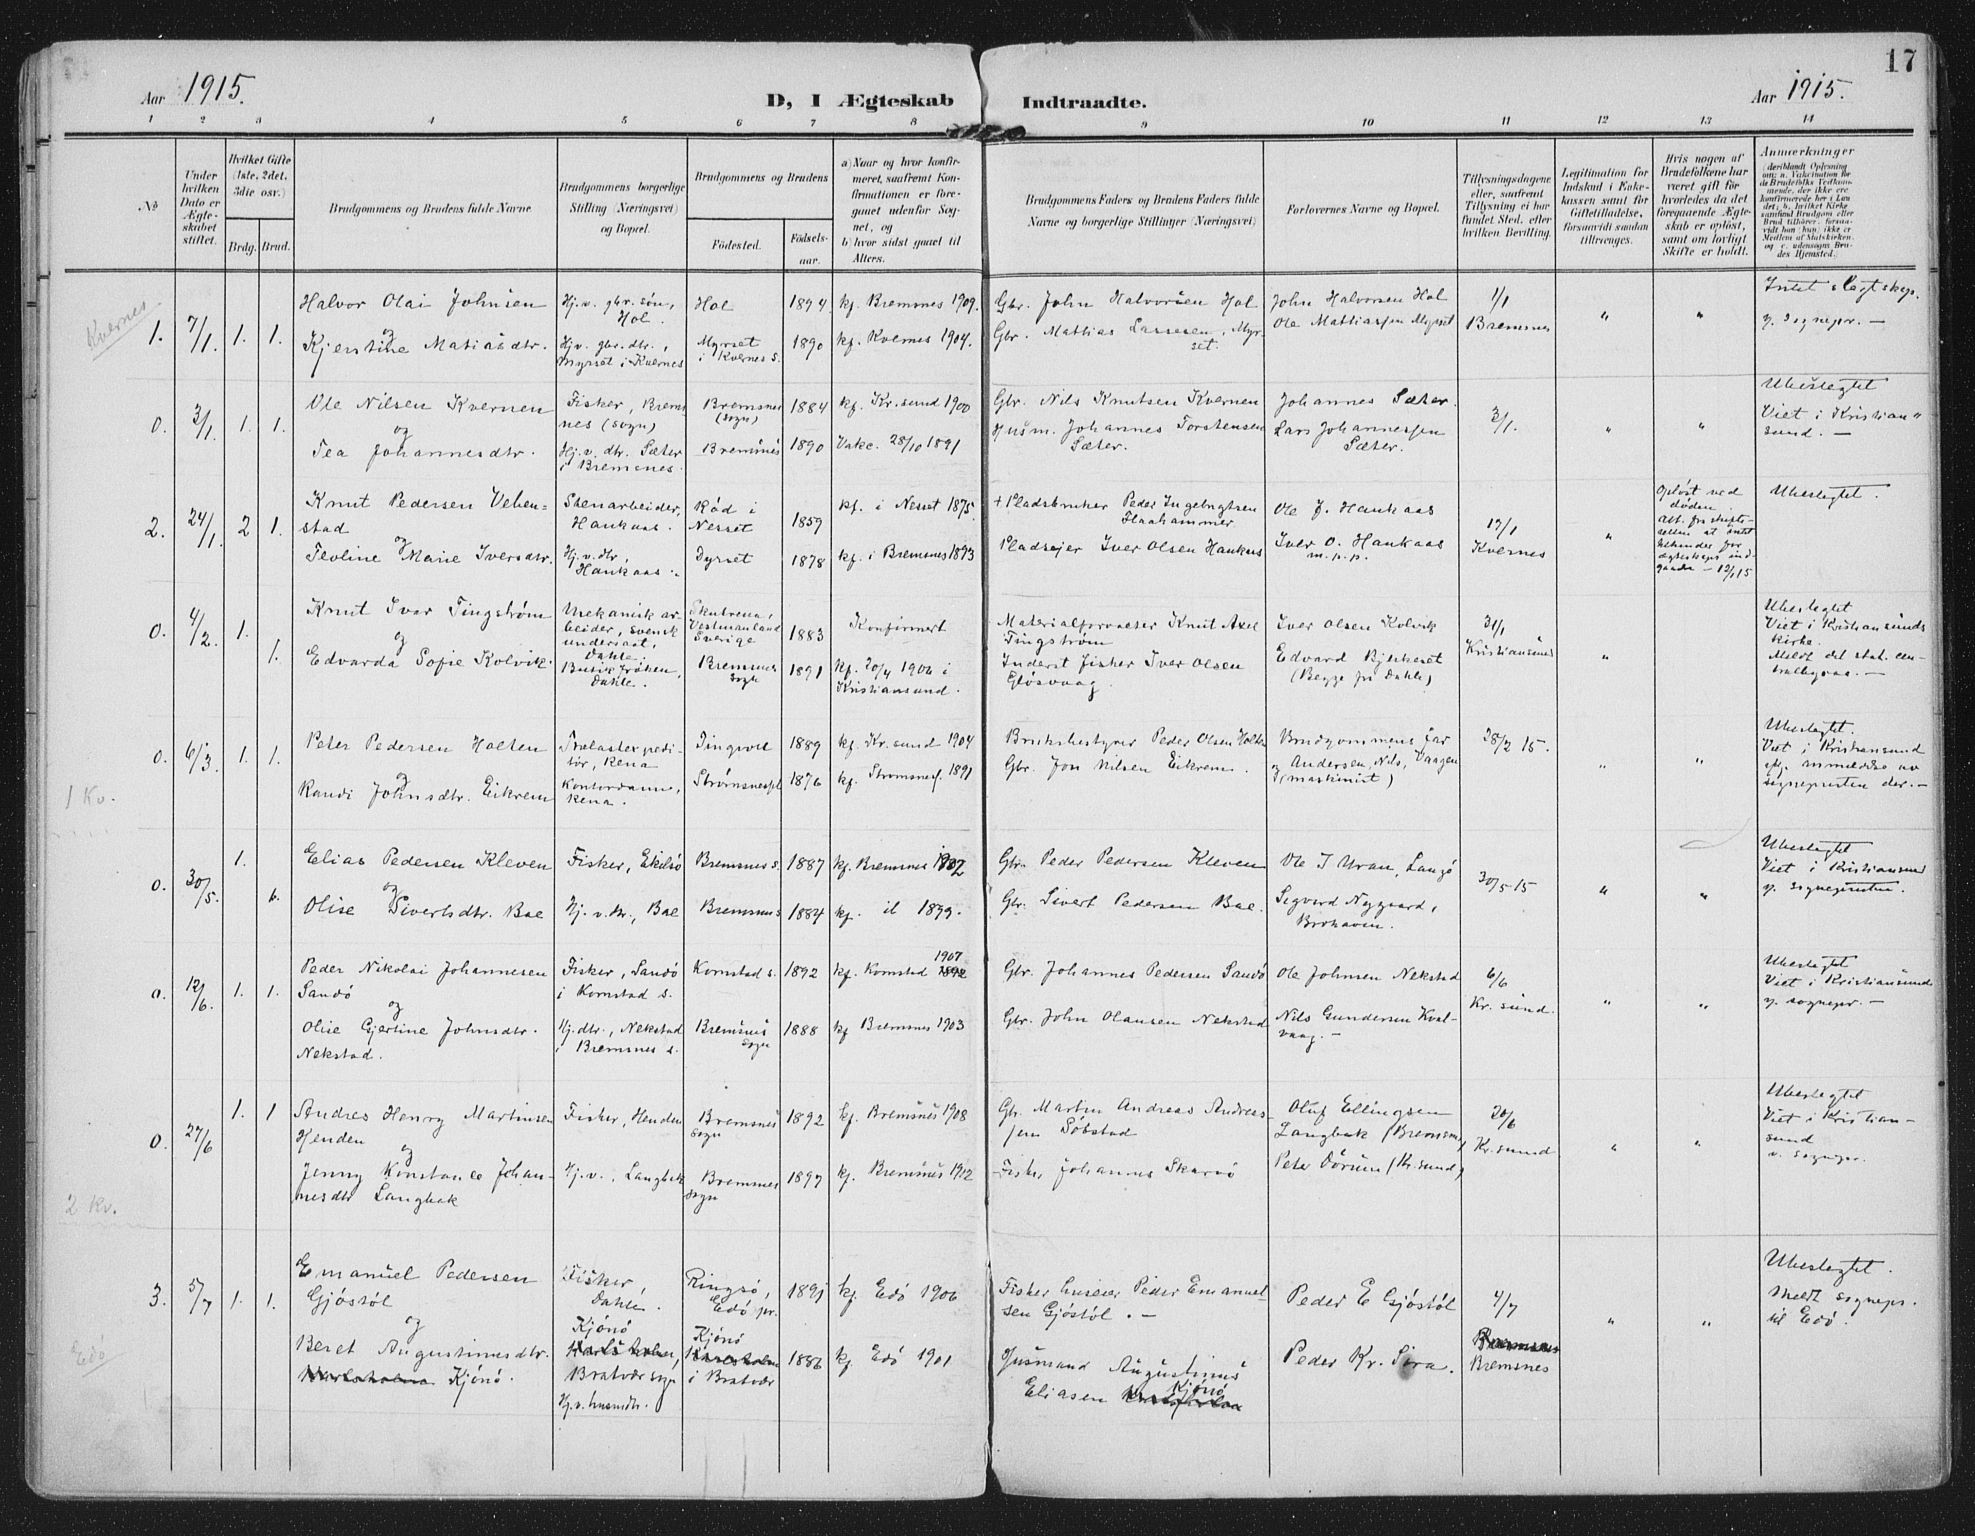 17
Aar 1915.
D, I Ægteskab Indtraadte.
Aar 1915.
1 2 3 4 5 6 7 8 9 10 11 12 13 14
No
Under hvilken Dato er Ægteskabet stiftet.
Hvilket Gifte (1ste, 2det, 3die osv.)
Brdg. Brud.
Brudgommens og Brudens fulde Navne.
Brudgommens borgerlige Stilling (Næringsvei) og Bopæl.
Brudgommens og Brudens
Födested.
Födselsaar.
a) Naar og hvor konfirmeret, saafremt Konfirmationen er foregaaet udenfor Sognet, og
b) hvor sidst gaaet til Alters.
Brudgommens Faders og Brudens Faders fulde Navne og borgerlige Stillinger (Næringsvei)
Forlovernes Navne og Bopæl.
Tillysningsdagene eller, saafremt Tillysning ei har fundet Sted, efter hvilken Bevilling.
Legitimation for Indskud i Enkekassen samt for Giftetilladelse, forsaavidt saadan tiltrænges.
Hvis nogen af Brudefolkene har været gift för hvorledes da det foregaaende Ægteskab er oplöst, samt om lovligt Skifte er holdt.
Anmærkninger
Kvernes.
1. 7/1. 1. 1.
Halvor Olai Johnsen
og
Kjerstine Matiasdtr.
Hj.v. gbr. søn, Hol.
Hj.v. gbr. dtr., Myrset i Kvernes
Hol
Myrset i Kvernes s.
1894
1890
kf. Bremnes 1909.
kf. Kvernes 1904.
Gbr. John Halvorsen Hol
Gbr. Mattias Lassesen, Myrset.
John Halvorsen Hol
Ole Mattiassen Myrset
1/1 Bremsnes
"
"
Intet slegtskap.
v. Sognepr. —
0. 3/1. 1. 1.
Ole Nilsen Kvernen
og
Tea Johannesdtr.
Fisker, Bremsnes (sogn)
Hj.v. dtr. Sæter i Bremsnes.
Bremsnes (sogn)
Bremsnes
1884
1890
kf. Kr.sund 1900
Vakc. 28/10 1891
Gbr. Nils Knutsen Kvernen
Husm. Johannes Torstensen Sæter.
Johannes Sæter.
Lars Johannessen Sæter.
3/1.
"
"
Ubeslegtet
Viet i Kristiansund. —
2. 24/1. 2 1.
Knut Pedersen Vebenstad
og
Teoline Marie Iversdtr.
Stenarbeider, Haukaas.
Hj.v. dtr., Haukaas.
Rød i Nesset
Dyrset
1859
1878
kf. i Nesset 1875.
kf. i Bremsnes 1893
+ Pladsbruker Peder Ingebrigtsen Flaahammer
Pladsejer Iver Olsen Haukaas
Ole J. Haukaas
Iver O. Haukaas
m.p.p.
17/1 Kvernes
"
Opløst ved døden.
Att. fra skifteretten at intet er til hinder for ægteskaps indgaaelse — 12/1 15
Ubeslegtet.
0. 4/2. 1. 1.
Knut Ivar Tingstrøm
og
Edvarda Sofie Kolvik.
Mekanisk arbeider, svensk undersaat, Dahle.
Butikfrøken, Dahle.
Vestmanland Sverige
Bremsnes sogn
1883
1891
Konfirmert
kf. 20/4 1906 i Kristiansund.
Materialforvalter Knut Axel Tingstrøm
Inderst Fisker Iver Olsen Gløsvaag.
Iver Olsen Kolvik
Edvard Bjerkeset
(Begge på Dahle)
31/1 Kristiansund
"
Ubeslegtet
Viet i Kristiansunds kirke.
Meldt det stat. centralbyraa. —
0. 6/3. 1. 1.
Peter Pedersen Holten
og
Randi Johnsdtr. Eikrem
Trælastexpeditør, Rena
Kontordame, Rena.
Tingvoll
Strømsnes
1889
1876
kf. Kr.sund 1904
kf. Strømsnes 1891
Bruksbestyrer Peder Olsen Holten
Gbr. Jon Nilsen Eikrem.
Brudgommens far
og Andersen, Nils, Vaagen
(maskinist)
28/2 15.
"
"
Ubeslegtet.
Viet i Kristiansund
efter anmeldelse av sognepresten der. —
1 Kv.
0. 30/5. 1. 1.
Elias Pedersen Kleven
og
Olise Sivertsdtr. Bae
Fisker, Ekilsø
Hj.v. dtr., Bae
Bremsnes s.
Bremsnes
1887
1884
kf. Bremsnes 1902
kf. il 1899.
Gbr. Peder Pedersen Kleven
Gbr. Sivert Pedersen Bae.
Ole I Uran, Langø
Segverd Nygaard, Brohaven.
30/5 15
"
"
Ubeslegtet
Viet i Kristiansund
v. sognepresten.
0. 12/6. 1. 1.
Peder Nikolai Johannesen Sandø
og
Olise Gjertine Johnsdtr. Nekstad.
Fisker, Sandø i Kornstad s.
Hj. dtr., Nekstad i Bremsnes s.
Kornstad s.
Bremsnes sogn
1892
1888
kf. Kornstad 1907 1892
kf Bremsnes 1903
Gbr. Johannes Pedersen Sandø
Gbr. John Olausen Nekstad
Ole Johnsen Nekstad
Nils Gundersen Kvalvaag. —
6/6 Kr. sund.
"
"
Ubeslegtet
Viet i Kristiansund
v. sognepr. —
0. 27/6 1. 1
Andres Henry Martinsen Henden
og
Jenny Konstance Johannesdtr Langbak
Fisker, Henden
Hj.v., Langbak
Bremsnes sogn
Bremsnes sogn
1892
1897
kf. Bremsnes 1908
kf. Bremsnes 1912
Gbr. Martin Andreas Andreassen Sølstad
Fisker Johannes Skarvø
Oluf Ellingsen Langbak (Bremsnes)
Peter Dørum (Kr.sund)
20/6 Kr. sund
"
"
Ubeslegtet
Viet i Kristiansund
v. sognepr.
2 Kv.
3. 5/7 1. 1.
Emanuel Pedersen Gjøstøl
og
Beret Augustinusdtr. Karlsholmen Kjønø.
Fisker, Dahle.
Kjønø Karlsholmen, Bratvær sogn
Hj.v. husmdtr.
Ringsø, Edø pr.
Kjønø Karlsholm i Bratvær
1891
1886
kf. Edø 1906
kf Edø 1901
Fisker Peder Emanuelsen Gjøstøl. —
Husmand Augustinus Eliasen Kjønø
Peder E Gjøstøl
Peder Kr. Sira.
4/7
Bremsnes
Bremsnes
"
"
Ubeslegtet.
Meldt sognepr. til Edø.
Edø